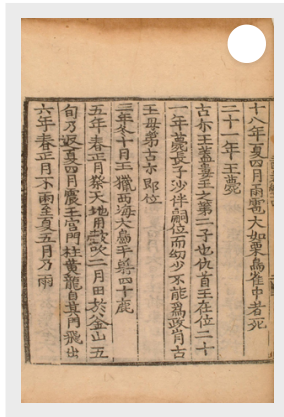 十八年夏四月雨雹大如栗鳥雀中者死
二十一年王薨
古尒王蓋婁王之第二子也仇首王在位二十
一年薨長子沙伴嗣位而幼少不能爲政肖古
王母弟古尒卽位
三年冬十月王獵西海大島手射四十鹿
五年春正月祭天地用鼓吹二月田於釜山五
旬乃返夏四月震王宫門柱黄龍自其門飛出
六年春正月不雨至夏五月乃雨